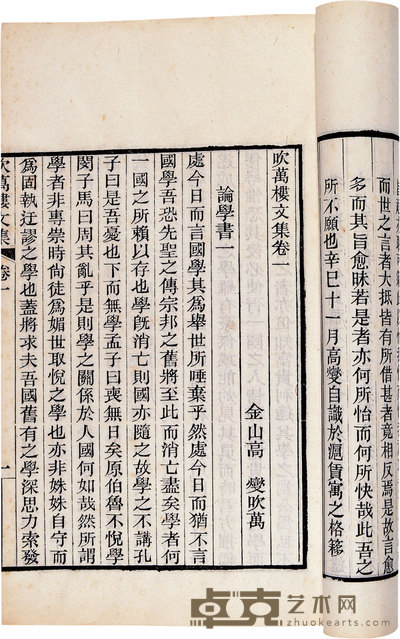 而世之言者大抵皆有所借甚者竟相反焉是故言愈
多而其旨愈昧若是者亦何所怡而何所快哉此吾之
所不願也辛巳十一月高燮自識於滬賃寓之格移
吹萬樓文集卷一
金山高 燮吹萬
論學書一
處今日而言國學其爲舉世所唾棄乎然處今日而猶不言
國學吾恐先聖之傳宗邦之舊將至此而消亡盡矣學者何
一國之所賴以存也學旣消亡則國亦隨之故學之不講孔
子曰是吾憂也下而無學孟子曰喪無日矣原伯魯不悅學
閔子馬曰周其亂乎是則學之關係於人國何如哉然所謂
學者非專崇時尚徒爲媚世取悅之學也亦非姝姝自守而
爲固執迂謬之學也蓋將求夫吾國舊有之學深思力索發
吹萬樓文集 卷一 一
卓克艺术网
www.zhuokearts.com